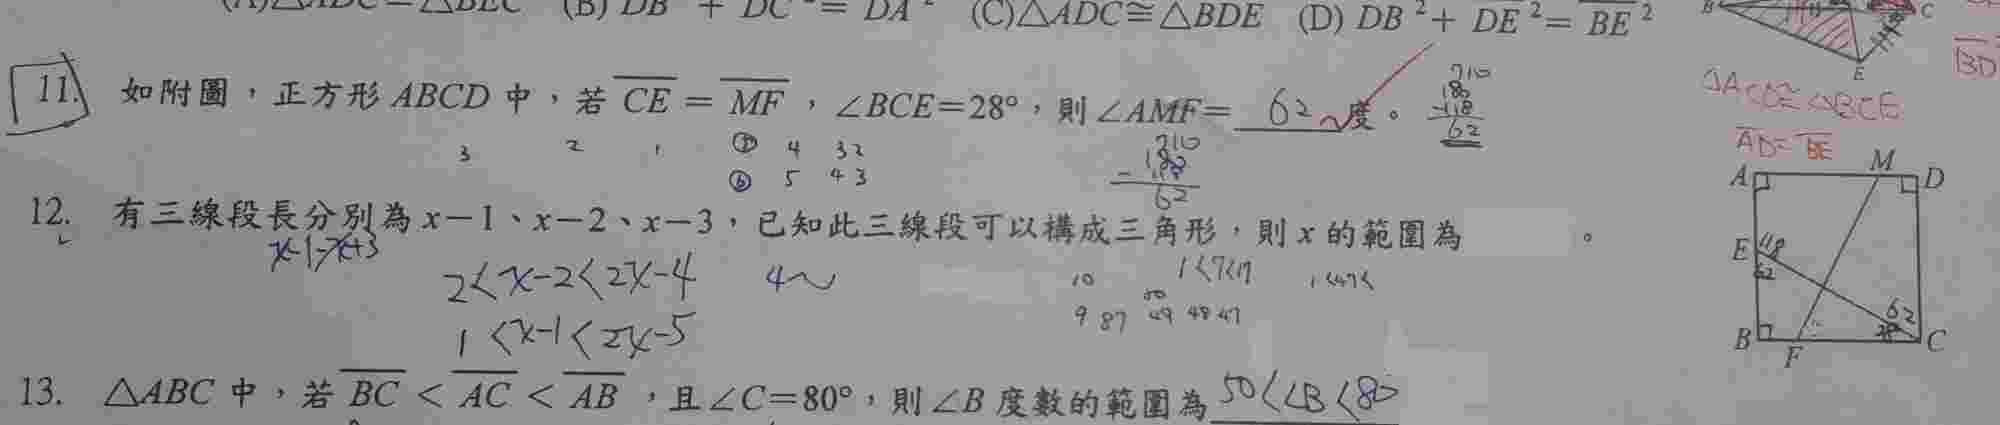 (A)△ADC≅△BEC (B) DB² + DC² = DA² (C)△ADC≅△BDE (D) DB² + DE² = BE²
B C E
BD
△ACD≅△BCE
AD=BE
11. 如附圖，正方形 ABCD 中，若 CE = MF，∠BCE=28°，則 ∠AMF= 62 度。
710
180
-118
62
3 2 1 ① 4 32
⑥ 5 43
710
180
-118
62
12. 有三線段長分別為 x－1、x－2、x－3，已知此三線段可以構成三角形，則 x 的範圍為 。
x-1-x+3
2<x-2<2x-4 4~
1<x-1<2x-5
10 1<7<17
9 87 49 48 47
A M D
E 118
62
62
28
B F C
13. △ABC 中，若 BC < AC < AB，且 ∠C=80°，則 ∠B 度數的範圍為 50<∠B<80